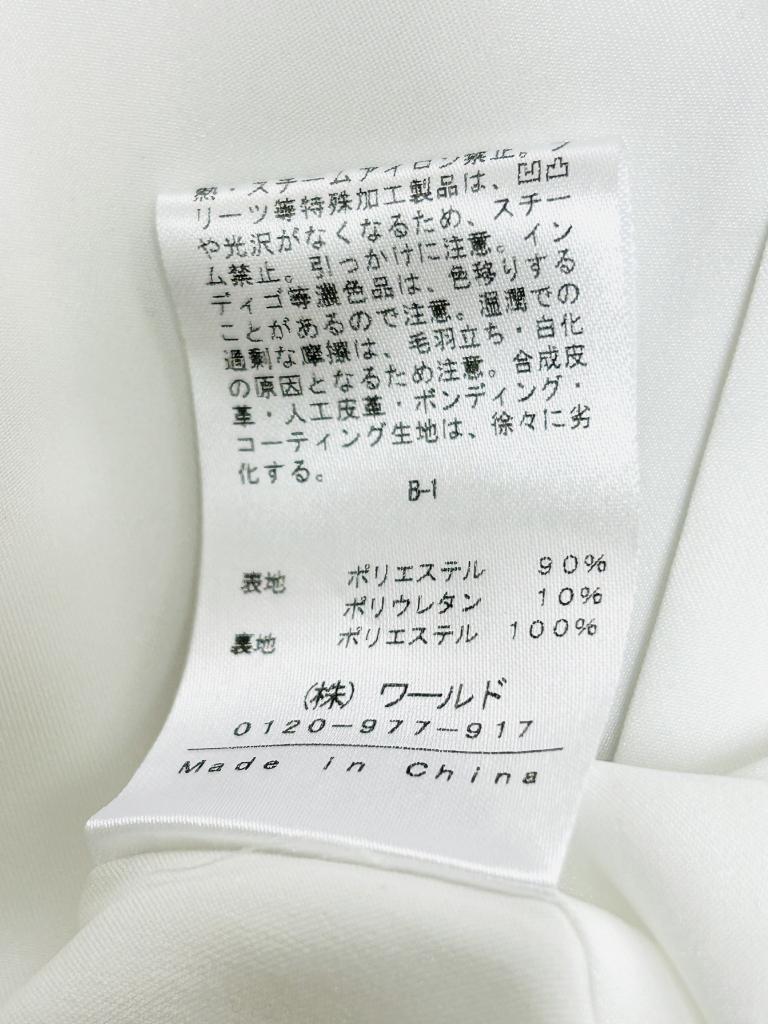 熱・スチームアイロン禁止。プ
リーツ等特殊加工製品は、凹凸
や光沢がなくなるため、スチー
ム禁止。引っかけに注意。イン
ディゴ等濃色品は、色移りする
ことがあるので注意。湿潤での
過剰な摩擦は、毛羽立ち・白化
の原因となるため注意。合成皮
革・人工皮革・ボンディング・
コーティング生地は、徐々に劣
化する。
B-1
表地 ポリエステル 90%
ポリウレタン 10%
裏地 ポリエステル 100%
(株) ワールド
0120-977-917
Made in China